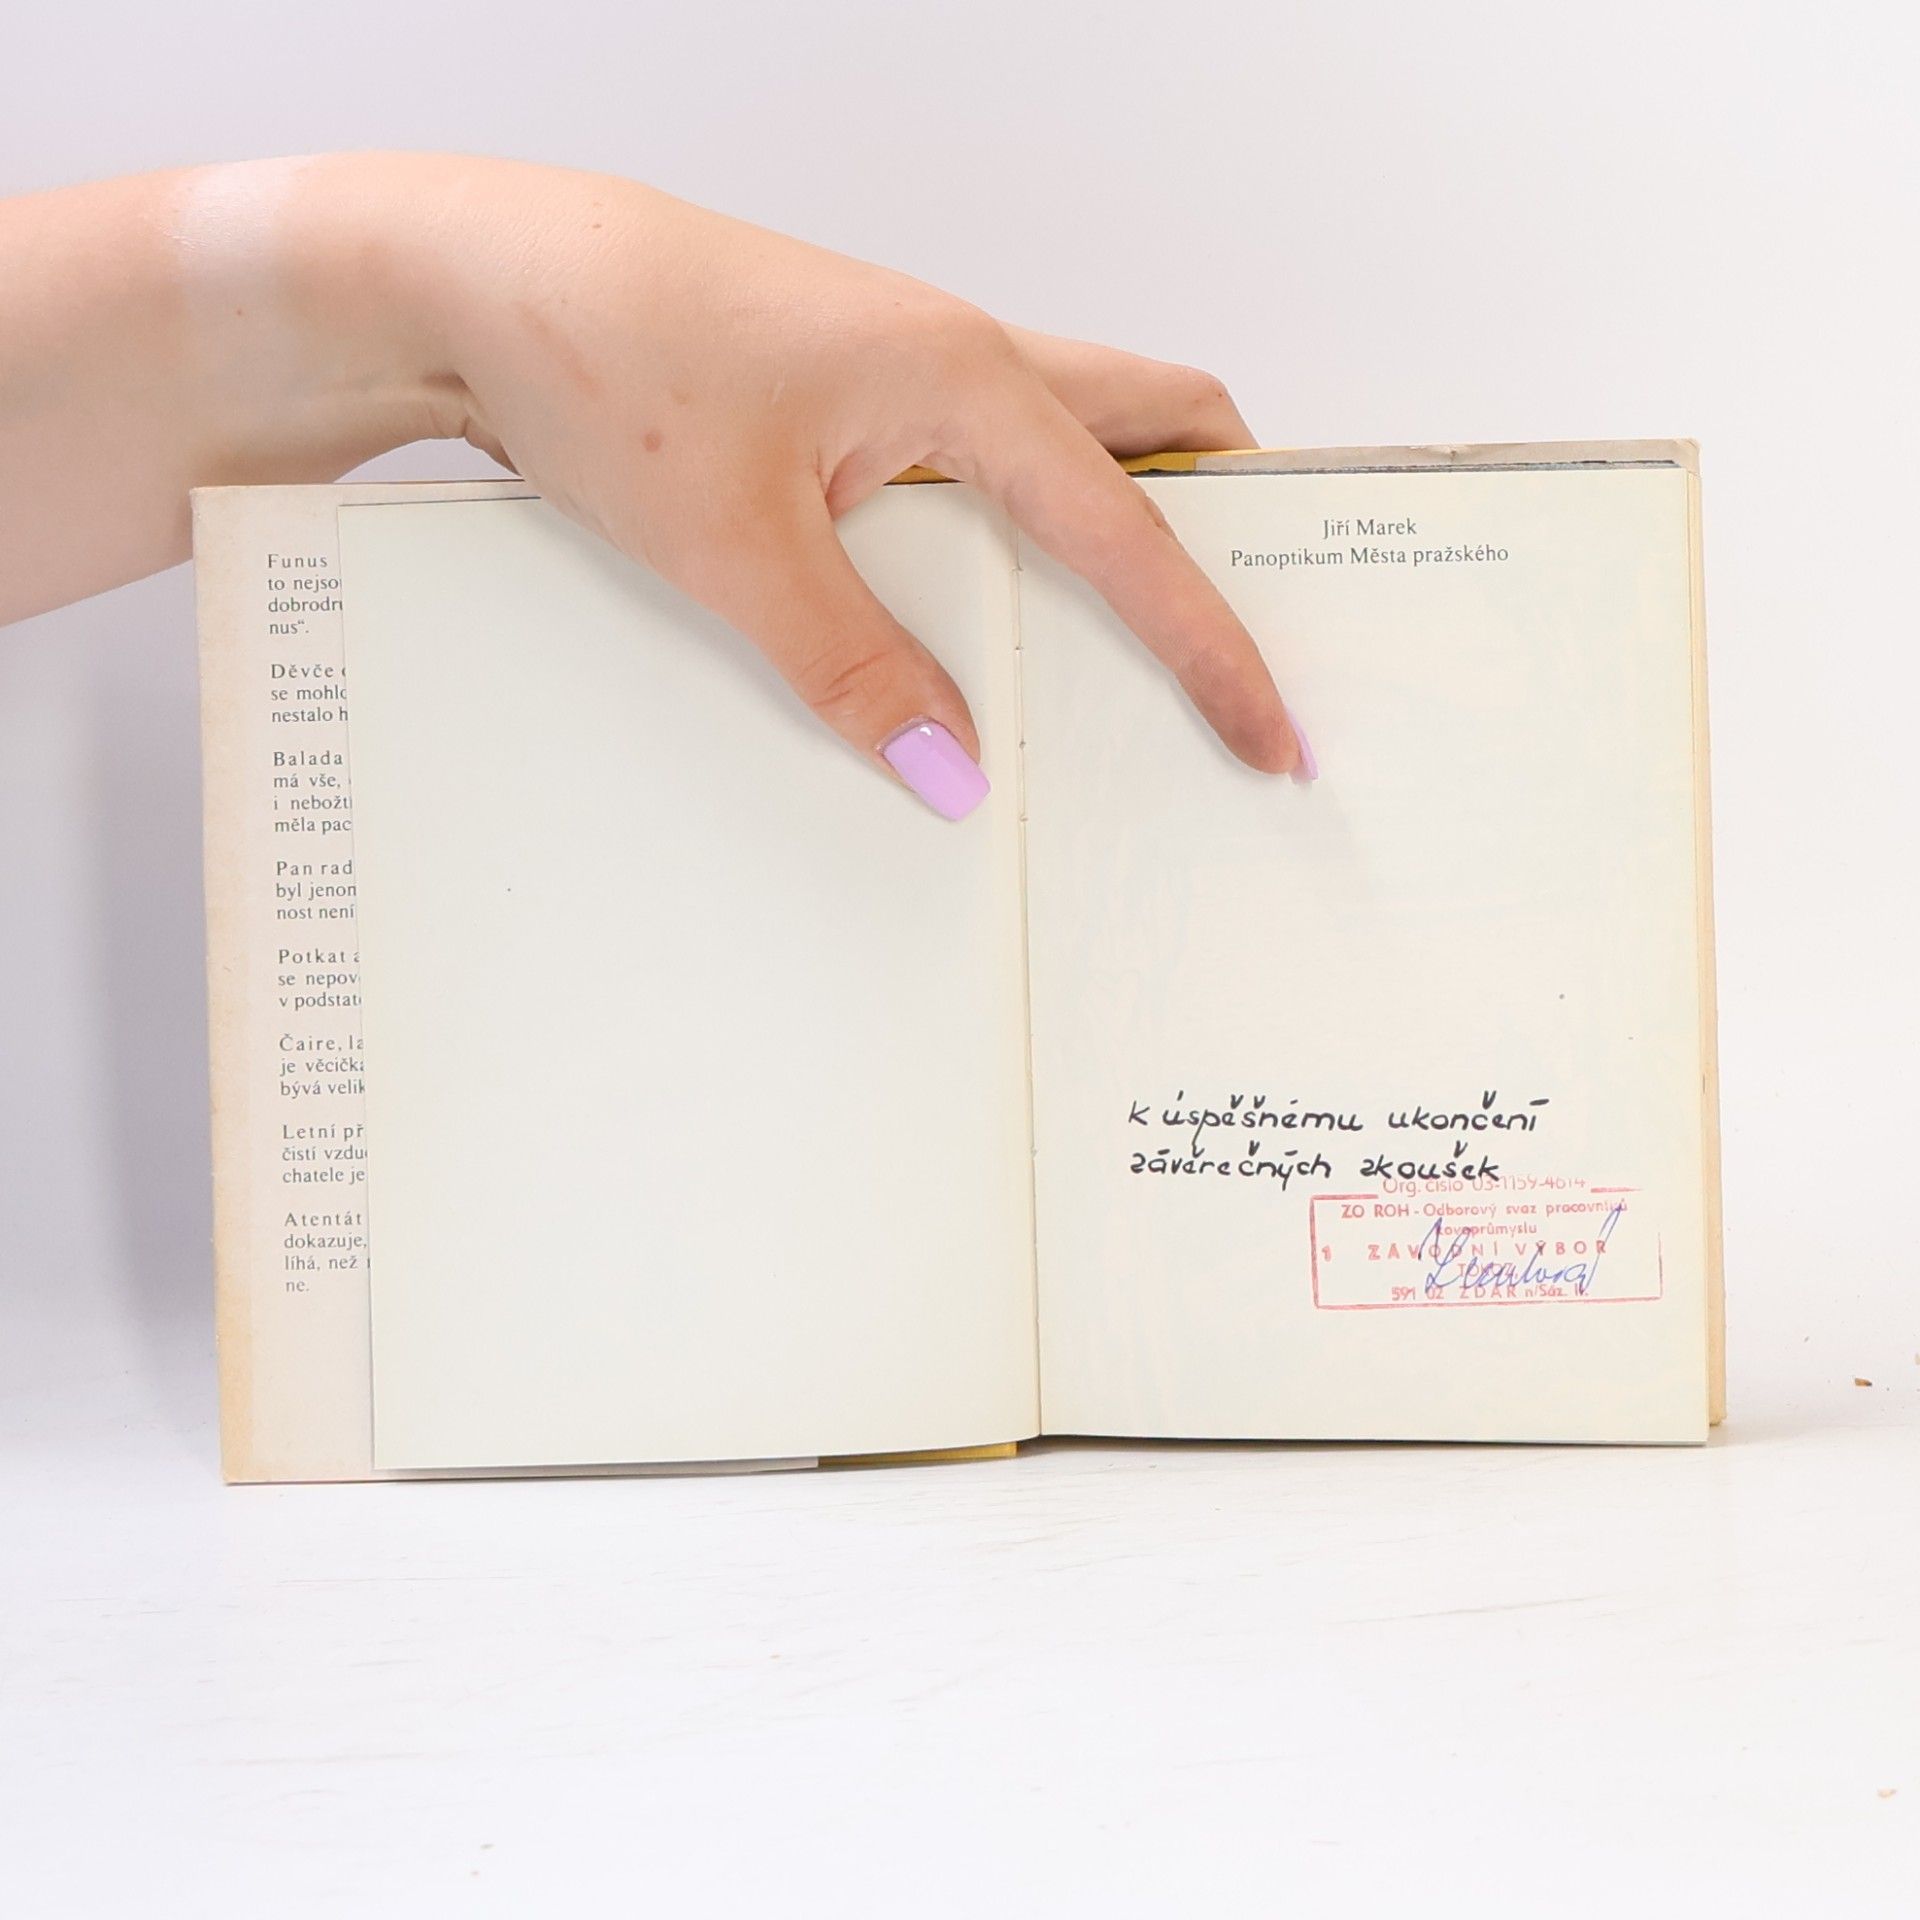 Funus
to nejso
dobrodru
nus“.
Děvče
se mohlo
nestalo h
Balada
má vše,
i nebožt
měla pac
Pan rad
byl jenom
nost není
Potkat a
se nepov
v podstat
Čaire, la
je věcičk
bývá velik
Letní př
čistí vzdu
chatele je
Atentát
dokazuje,
líhá, než
ne.
Jiří Marek
Panoptikum Města pražského
K úspěšnému ukončení
závěrečných zkoušek
Org. číslo 03-1159-4614
ZO ROH - Odborový svaz pracovníků
kovoprůmyslu
1 ZÁVODNÍ VÝBOR
TOKOZ
591 02 ŽĎÁR n/Sáz. II.